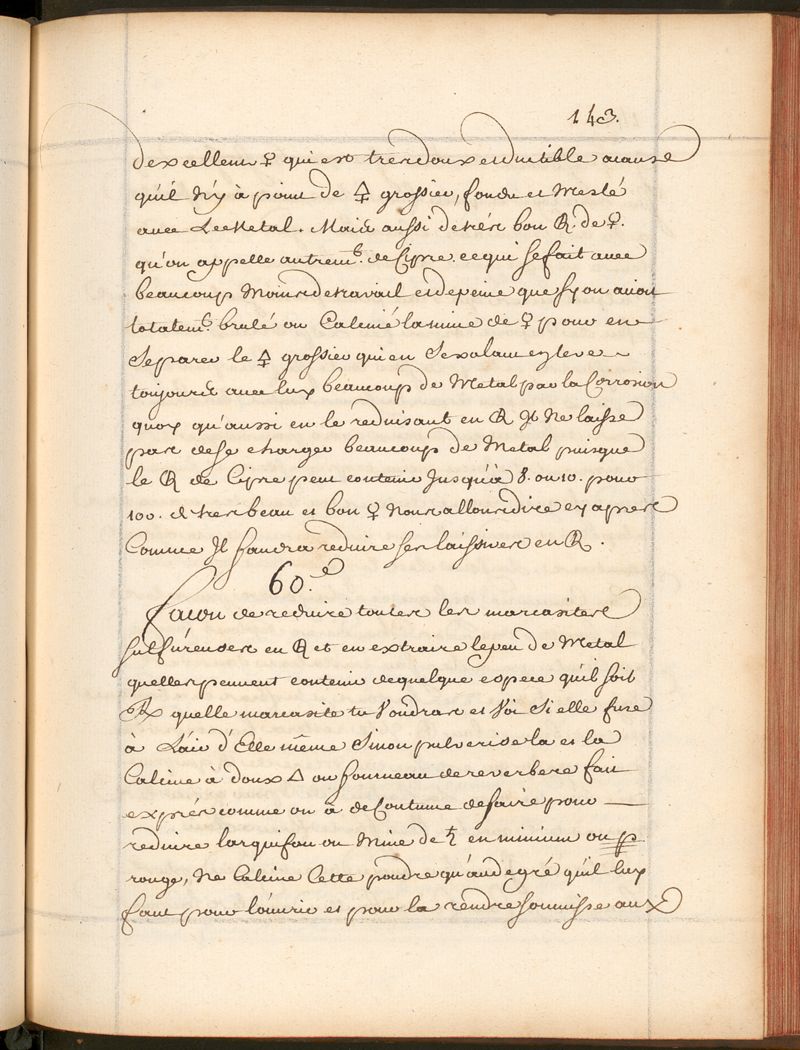 143.
dexcellent ♀ qui est tres doux et ductible a cause
qu'il n'y à point de 🜍 grossier, fondu et meslé
avec Le Metal. Mais aussi de trés bon 🜖. de ♀.
qu'on appelle autrem.t de Cipre ce qui se fait avec
beaucoup moins de travail et de peine que sy on avoit
totalem.t brulé ou Calciné la mine de ♀ pour en
separer le 🜍 grossier qui en s'exalant enleve
toujours avec luy beaucoup de Metal par la Corrosion
quoy qu'aussi en le reduisant en 🜖 Jl ne laisse
pas de se charger beaucoup de Metal puisque
le 🜖 de Cipre peut contenir Jusqu'à 8. ou 10. pour
100. de tres beau et bon ♀ Nous allons dire cy apres
Comme Jl faudra reduire ses laissives en 🜖.
60.e
facon de reduire toutes les marcasites
sulfureuses en 🜖 et en extraire le peu de Metal
quelles peuvent contenir de quelque espece qu'il soit
℞ quelle marcasite tu Voudras et Voi si elle fuse
à L'air d'Elle même sinon pulverise la et la
Calcine à doux 🜂 ou fourneau de reverbere fait
exprés comme on à de Coutume de faire pour
reduire larquifou ou Mine de ♄ en minium ou
rouge, Ne Calcine Cette poudre qu'au degré qu'il luy
faut pour l'ouvrir et pour la rendre soumisse aux